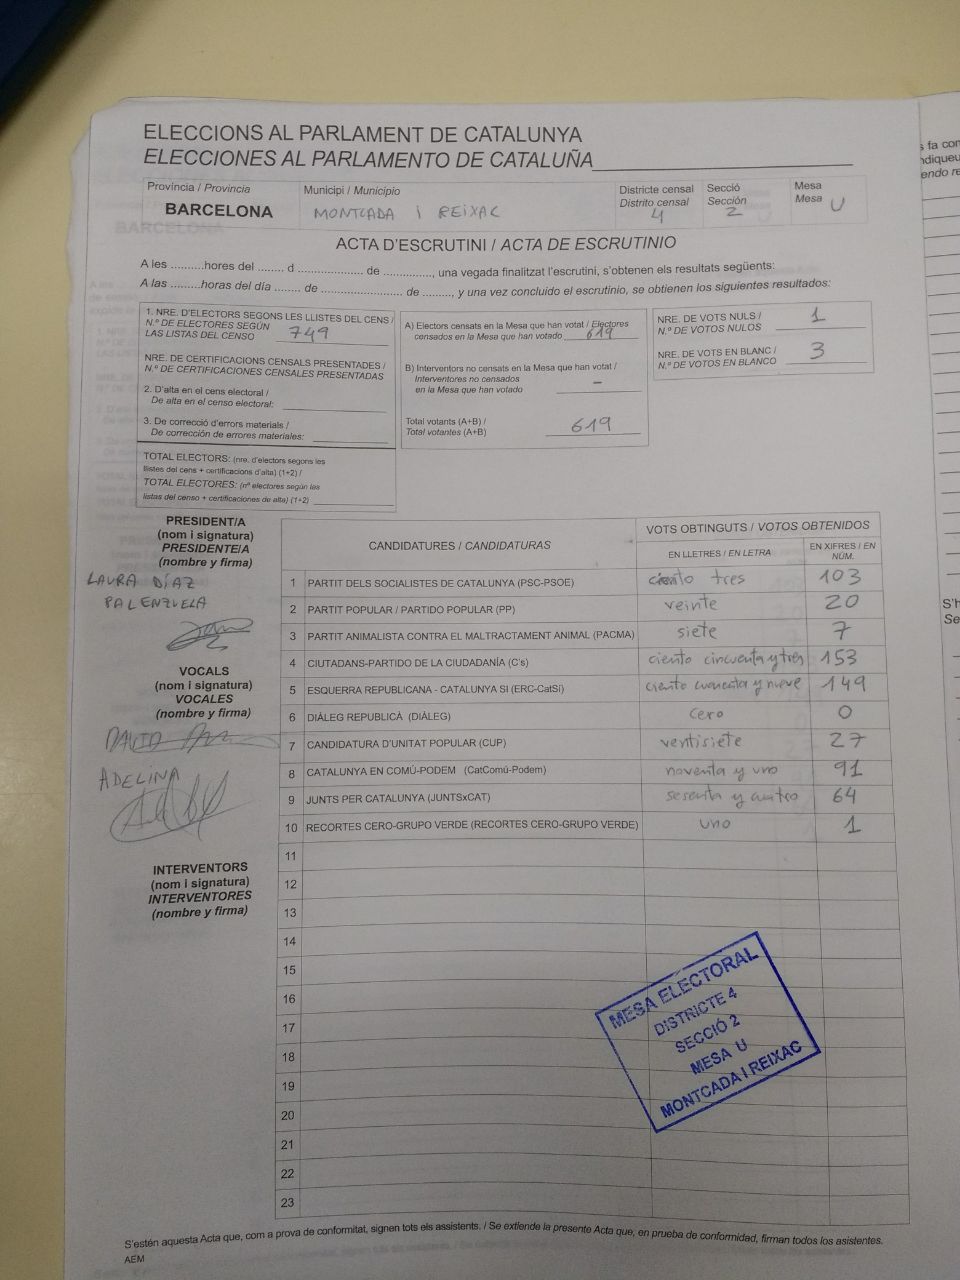 ELECCIONS AL PARLAMENT DE CATALUNYA
ELECCIONES AL PARLAMENTO DE CATALUÑA
Província / Provincia
BARCELONA
Municipi / Municipio
MONTCADA i REiXAC
Districte censal
Distrito censal
4
Secció
Sección
2
Mesa
Mesa U
ACTA D'ESCRUTINI / ACTA DE ESCRUTINIO
A les ..........hores del ........ d .................... de ..............., una vegada finalitzat l'escrutini, s'obtenen els resultats següents:
A las .........horas del día ....... de ......................... de ........., y una vez concluido el escrutinio, se obtienen los siguientes resultados:
1. NRE. D'ELECTORS SEGONS LES LLISTES DEL CENS /
N.º DE ELECTORES SEGÚN
LAS LISTAS DEL CENSO 749
NRE. DE CERTIFICACIONS CENSALS PRESENTADES /
N.º DE CERTIFICACIONES CENSALES PRESENTADAS
2. D'alta en el cens electoral /
De alta en el censo electoral:
3. De correcció d'errors materials /
De corrección de errores materiales:
TOTAL ELECTORS: (nre. d'electors segons les
llistes del cens + certificacions d'alta) (1+2) /
TOTAL ELECTORES: (nº electores según las
listas del censo + certificaciones de alta) (1+2)
A) Electors censats en la Mesa que han votat / Electores
censados en la Mesa que han votado 619
B) Interventors no censats en la Mesa que han votat /
Interventores no censados
en la Mesa que han votado –
Total votants (A+B) /
Total votantes (A+B) 619
NRE. DE VOTS NULS /
N.º DE VOTOS NULOS 1
NRE. DE VOTS EN BLANC /
N.º DE VOTOS EN BLANCO 3
PRESIDENT/A
(nom i signatura)
PRESIDENTE/A
(nombre y firma)
LAURA DÍAZ
PALENZUELA
VOCALS
(nom i signatura)
VOCALES
(nombre y firma)
DAVID
ADELINA
INTERVENTORS
(nom i signatura)
INTERVENTORES
(nombre y firma)
CANDIDATURES / CANDIDATURAS
VOTS OBTINGUTS / VOTOS OBTENIDOS
EN LLETRES / EN LETRA
EN XIFRES / EN
NÚM.
1 PARTIT DELS SOCIALISTES DE CATALUNYA (PSC-PSOE) ciento tres 103
2 PARTIT POPULAR / PARTIDO POPULAR (PP) veinte 20
3 PARTIT ANIMALISTA CONTRA EL MALTRACTAMENT ANIMAL (PACMA) siete 7
4 CIUTADANS-PARTIDO DE LA CIUDADANÍA (C's) ciento cincuenta y tres 153
5 ESQUERRA REPUBLICANA - CATALUNYA SI (ERC-CatSí) ciento cuarenta y nueve 149
6 DIÀLEG REPUBLICÀ (DIÀLEG) cero 0
7 CANDIDATURA D'UNITAT POPULAR (CUP) ventisiete 27
8 CATALUNYA EN COMÚ-PODEM (CatComú-Podem) noventa y uno 91
9 JUNTS PER CATALUNYA (JUNTSxCAT) sesenta y cuatro 64
10 RECORTES CERO-GRUPO VERDE (RECORTES CERO-GRUPO VERDE) uno 1
11
12
13
14
15
16
17
18
19
20
21
22
23
MESA ELECTORAL
DISTRICTE 4
SECCIÓ 2
MESA U
MONTCADA I REIXAC
S'estén aquesta Acta que, com a prova de conformitat, signen tots els assistents. / Se extiende la presente Acta que, en prueba de conformidad, firman todos los asistentes.
AEM